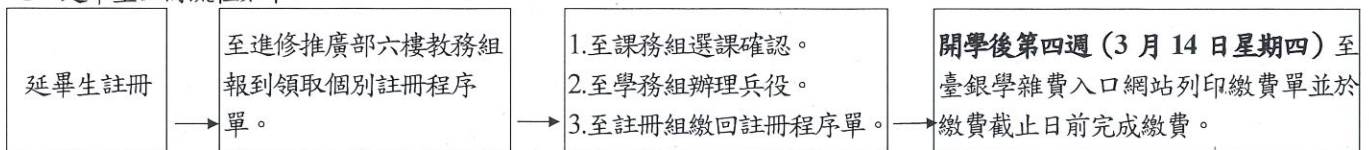 延畢生註冊
至進修推廣部六樓教務組
報到領取個別註冊程序
單。
1.至課務組選課確認。
2.至學務組辦理兵役。
3.至註冊組繳回註冊程序單。
開學後第四週（3 月 14 日星期四）至
臺銀學雜費入口網站列印繳費單並於
繳費截止日前完成繳費。